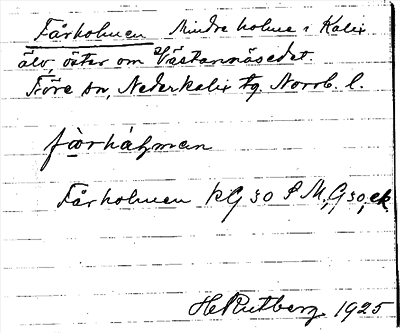 Fårholmen Mindre holme i Kalix
älv, öster om Västannäsedet.
Före sn, Nederkalix tg. Norrb. l.
fårhålman
Fårholmen kG 30 S M, G 30, ek
H Rutberg 1925